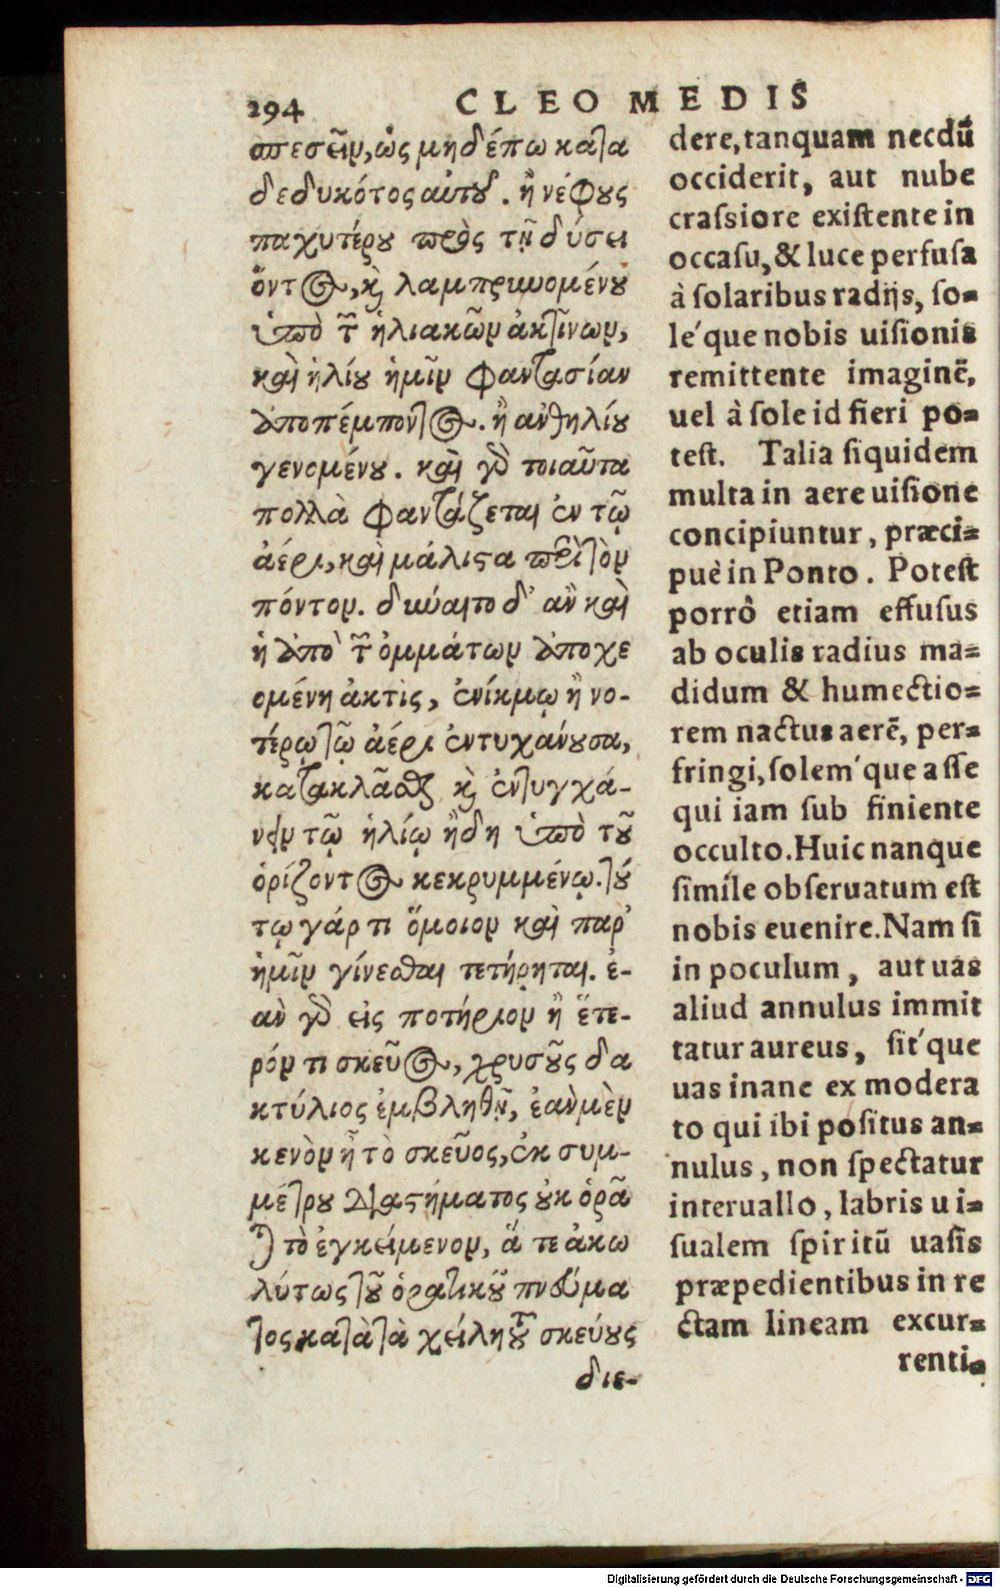 294 CLEOMEDIS
απεσεῖν, ὡς μηδέπω κατα
δεδυκότος αὐτοῦ. ἢ νέφους
παχυτέρου πρὸς τῇ δύσει
ὄντος, καὶ λαμπρυνομένου
ὑπὸ τῶν ἡλιακῶν ἀκτίνων,
καὶ ἡλίου ἡμῖν φαντασίαν
ἀποπέμποντος. ἢ ἀνθηλίου
γενομένου. καὶ γὰρ τοιαῦτα
πολλὰ φαντάζεται ἐν τῷ
ἀέρι, καὶ μάλιστα περὶ τὸν
πόντον. δύναιτο δ' ἂν καὶ
ἡ ἀπὸ τῶν ὀμμάτων ἀποχε
ομένη ἀκτὶς, ἐνίκμῳ ἢ νο-
τέρῳ τῷ ἀέρι ἐντυχάνουσα,
κατακλᾶσθαι καὶ ἐντυγχά-
νειν τῷ ἡλίῳ ἤδη ὑπὸ τοῦ
ὁρίζοντος κεκρυμμένῳ. τού
τῳ γάρ τι ὅμοιον καὶ παρ'
ἡμῖν γίνεσθαι τετήρηται. ἐ-
ὰν γὰρ εἰς ποτήριον ἢ ἕτε-
ρόν τι σκεῦος, χρυσοῦς δα
κτύλιος ἐμβληθῇ, ἐὰν μὲν
κενὸν ᾖ τὸ σκεῦος, ἐκ συμ-
μέτρου διαστήματος οὐκ ὁρᾶ
ται τὸ ἐγκείμενον, ἅ τε ἀκω
λύτως τοῦ ὁρατικοῦ πνεύμα
τος κατὰ τὰ χείλη τοῦ σκεύους
διε-
dere, tanquam necdū
occiderit, aut nube
craſsiore exiſtente in
occaſu, & luce perfuſa
à ſolaribus radijs, ſo=
le'que nobis uiſionis
remittente imaginē,
uel à ſole id fieri po=
teſt. Talia ſiquidem
multa in aere uiſione
concipiuntur, præci=
puè in Ponto. Poteſt
porrò etiam effuſus
ab oculis radius ma=
didum & humectio=
rem nactus aerē, per=
fringi, ſolem'que aſſe
qui iam ſub finiente
occulto. Huic nanque
ſimile obſeruatum eſt
nobis euenire. Nam ſi
in poculum, aut uas
aliud annulus immit
tatur aureus, ſit'que
uas inane ex modera
to qui ibi poſitus an=
nulus, non ſpectatur
interuallo, labris ui=
ſualem ſpiritū uaſis
præpedientibus in re
ctam lineam excur=
renti=
Digitalisierung gefördert durch die Deutsche Forschungsgemeinschaft - DFG